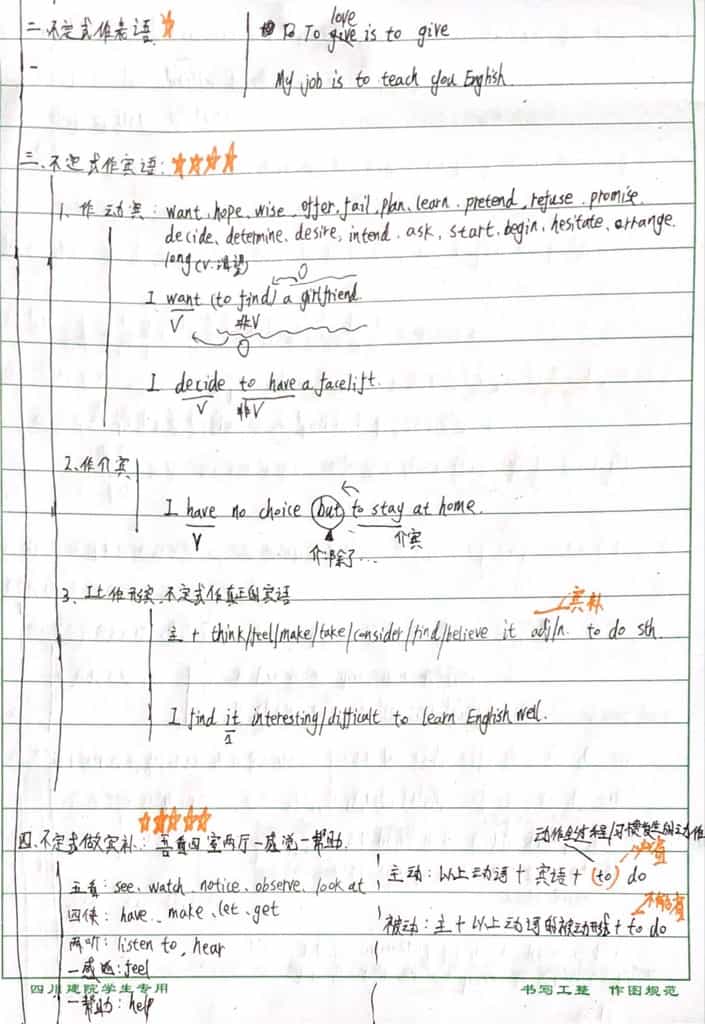 二.不定式作表语 ☆
love
To give is to give
My job is to teach you English.
三.不定式作宾语: ☆☆☆☆
1、作动宾: want、hope、wise、offer、fail、plan、learn、pretend、refuse、promise、
decide、determine、desire、intend、ask、start、begin、hesitate、arrange、
long (v.渴望)
I want (to find) a girlfriend.
V 非V
I decide to have a facelift.
V 非V
2.作介宾
I have no choice but to stay at home.
V 介宾
介:除了…
3、It作形宾,不定式作真正的宾语
宾补
主 + think/feel/make/take/consider/find/believe it adj/n. to do sth.
I find it interesting/difficult to learn English well.
四.不定式做宾补: ☆☆☆☆☆ 五看四室两厅一感觉一帮助.
动作全过程/习惯发生的动作
五看: see、watch、notice、observe、look at
主动: 以上动词 + 宾语 + (to) do
省
四使: have、make、let、get
不能省
被动: 主 + 以上动词的被动形式 + to do
两听: listen to, hear
一感觉: feel
一帮助: help
四川建院学生专用 书写工整 作图规范